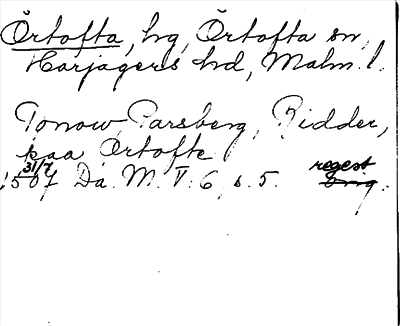 Örtofta, hg, Örtofta sn,
Harjagers hd, Malm. l.
Tonow Parsberg, Ridder,
paa Ortofte
31/7
1507 Da. M. V. 6, s. 5. regest